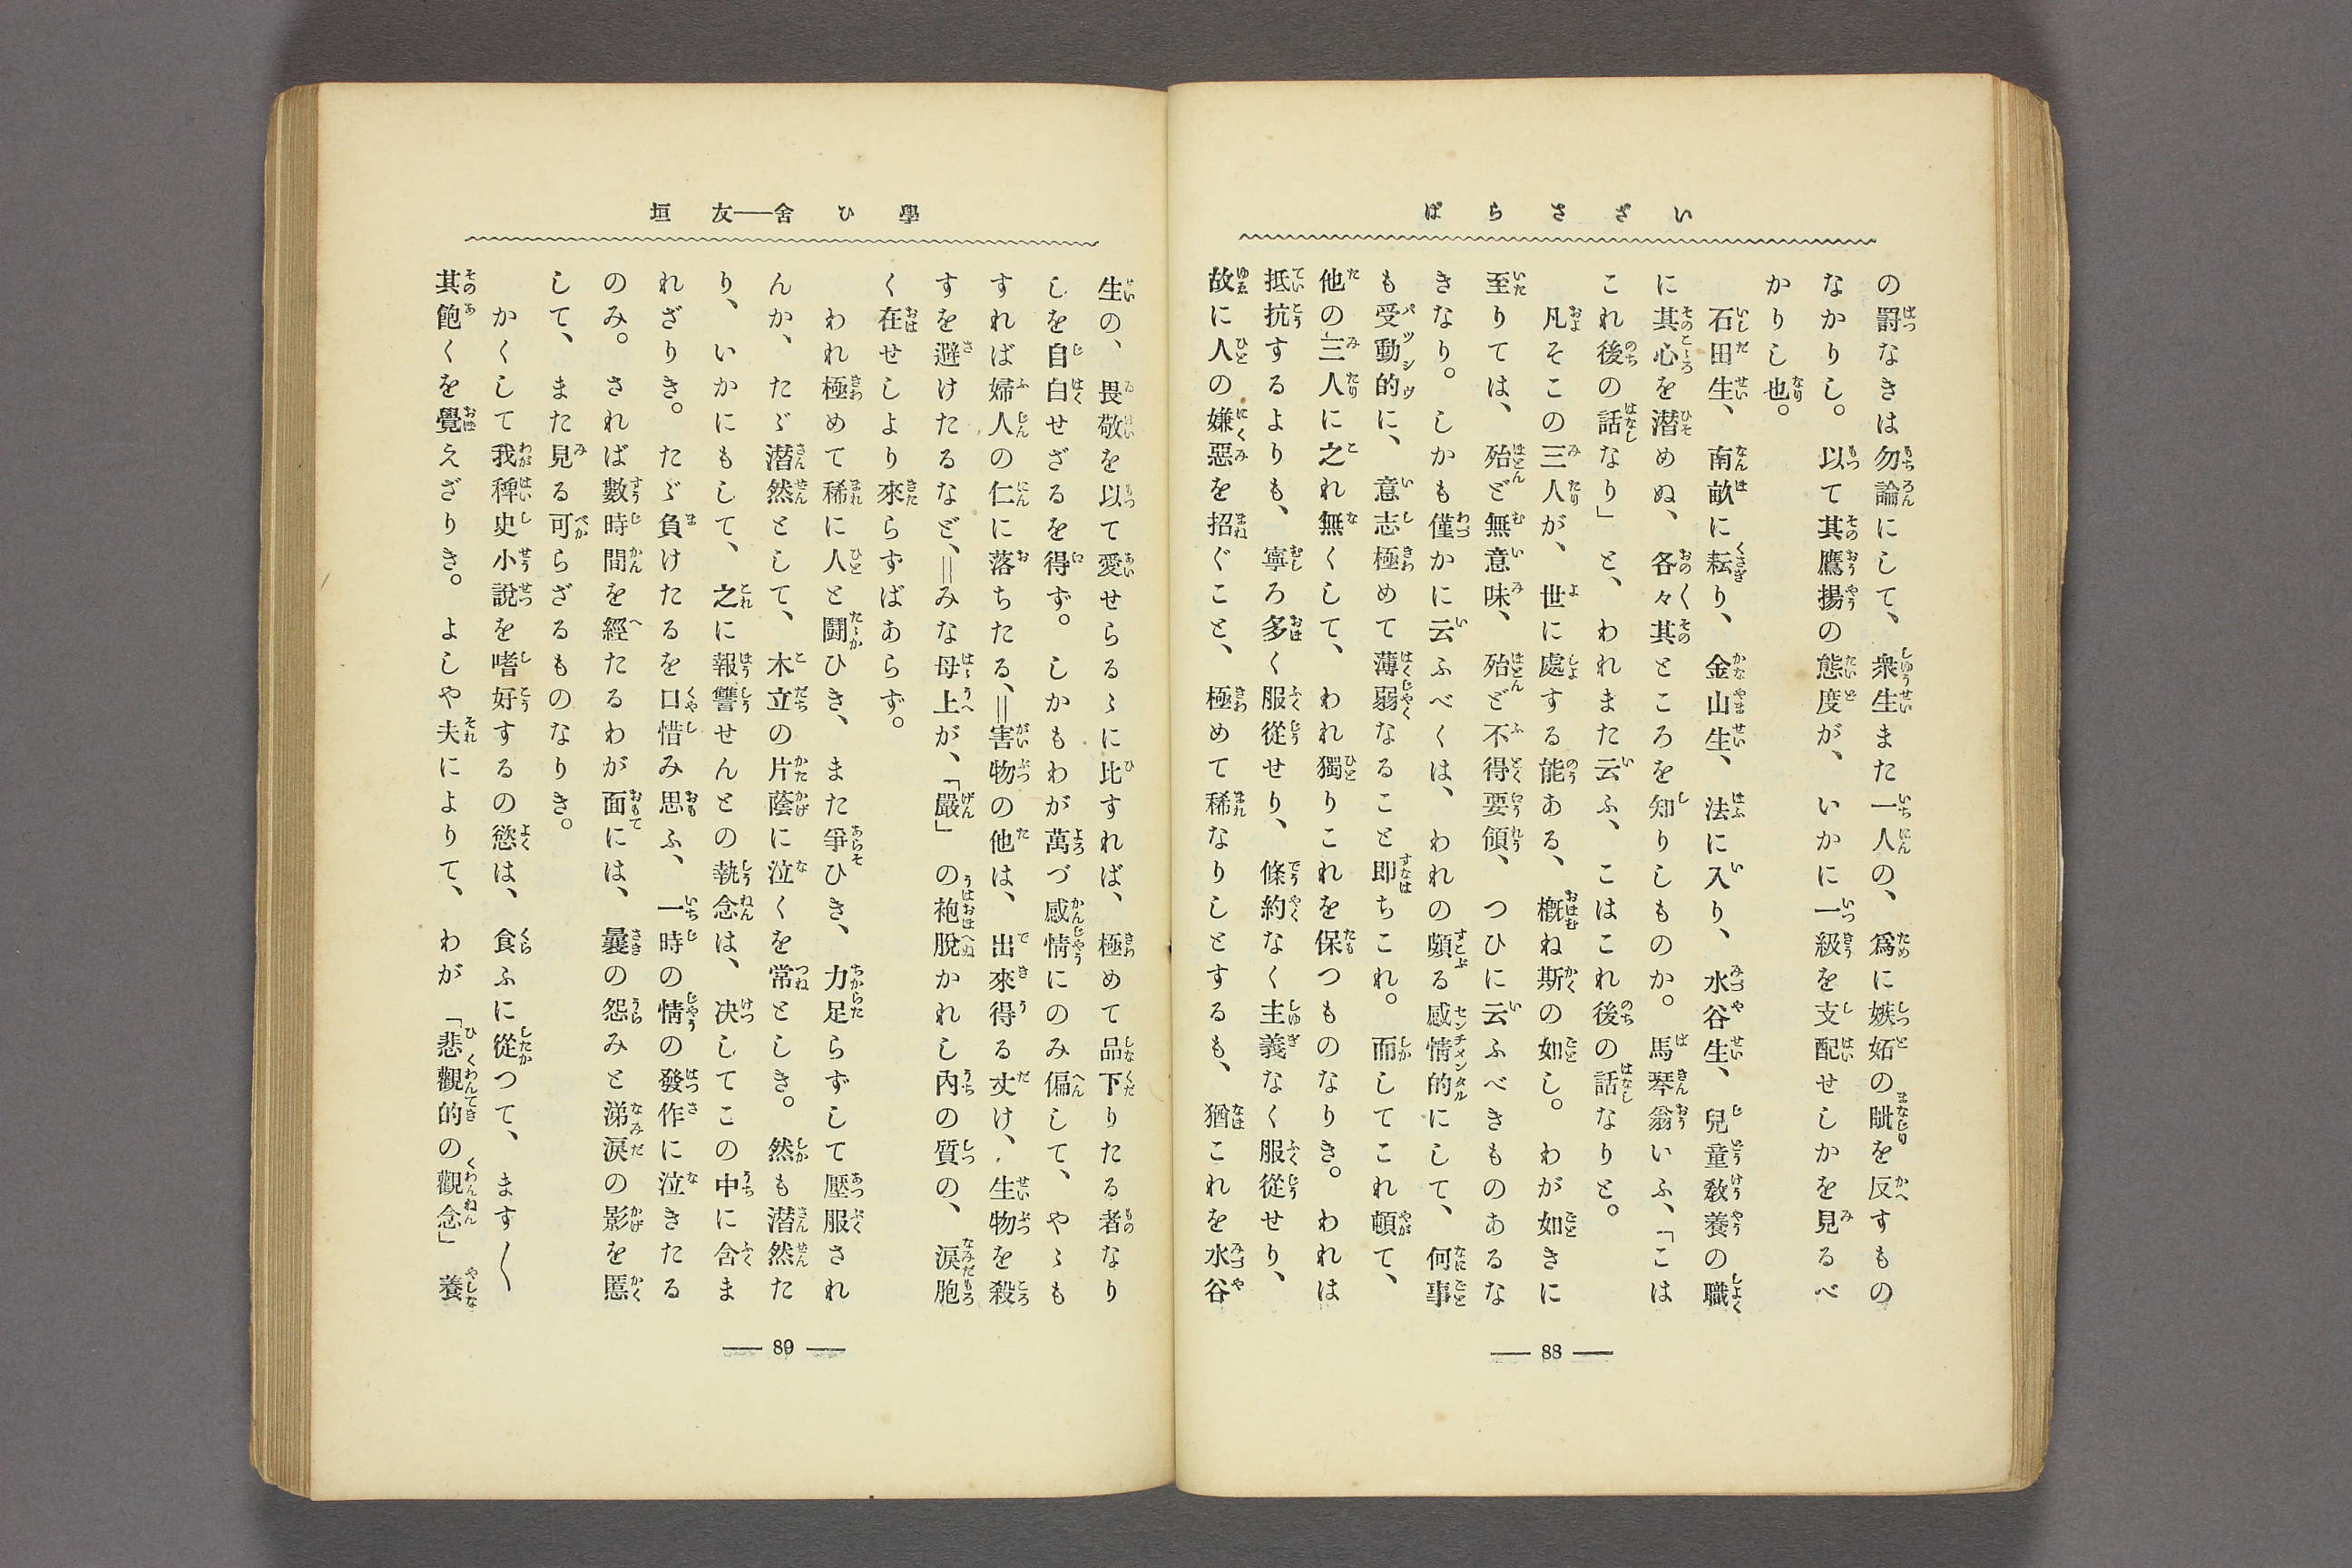 いざさらば
の罸なきは勿論にして、衆生また一人の、爲に嫉妬の眦を反すもの
なかりし。以て其鷹揚の態度が、いかに一級を支配せしかを見るべ
かりし也。
石田生、南畝に耘り、金山生、法に入り、水谷生、兒童敎養の職
に其心を潜めぬ、各々其ところを知りしものか。馬琴翁いふ、「こは
これ後の話なり」と、われまた云ふ、こはこれ後の話なりと。
凡そこの三人が、世に處する能ある、槪ね斯の如し。わが如きに
至りては、殆ど無意味、殆ど不得要領、つひに云ふべきものあるな
きなり。しかも僅かに云ふべくは、われの頗る感情的にして、何事
も受動的に、意志極めて薄弱なること即ちこれ。而してこれ頓て、
他の三人に之れ無くして、われ獨りこれを保つものなりき。われは
抵抗するよりも、寧ろ多く服從せり、條約なく主義なく服從せり、
故に人の嫌惡を招ぐこと、極めて稀なりしとするも、猶これを水谷
― 88 ―
學ひ舍―友垣
生の、畏敬を以て愛せらるゝに比すれば、極めて品下りたる者なり
しを自白せざるを得ず。しかもわが萬づ感情にのみ偏して、やゝも
すれば婦人の仁に落ちたる、＝害物の他は、出來得る丈け、生物を殺
すを避けたるなど、＝みな母上が、「嚴」の袍脫かれし內の質の、淚胞
く在せしより來らずばあらず。
われ極めて稀に人と鬪ひき、また爭ひき、力足らずして壓服され
んか、たゞ潜然として、木立の片蔭に泣くを常としき。然も潜然た
り、いかにもして、之に報讐せんとの執念は、决してこの中に含ま
れざりき。たゞ負けたるを口惜み思ふ、一時の情の發作に泣きたる
のみ。されば數時間を經たるわが面には、曩の怨みと涕淚の影を慝
して、また見る可らざるものなりき。
かくして我稗史小說を嗜好するの慾は、食ふに從つて、ます〱
其飽くを覺えざりき。よしや夫によりて、わが「悲觀的の觀念」養
― 89 ―